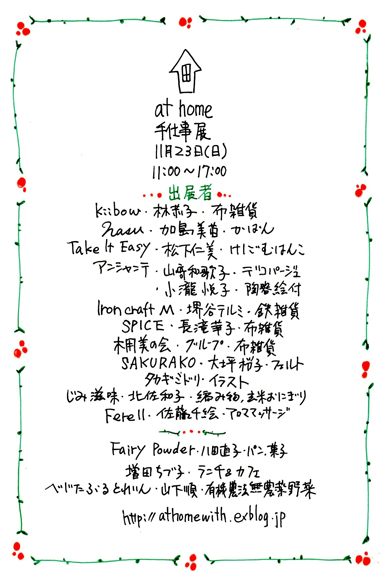 at home
手仕事展
11月23日(日)
11:00～17:00
出展者
kiibow・林恭子・布雑貨
加島美音・かばん
Take It Easy・松下仁美・けしごむはんこ
アンシャンテ・山﨑和歌子・デコパージュ
・小瀧悦子・陶磐絵付
Iron craft M・堺谷テルミ・鉄雑貨
SPICE・長滝華子・布雑貨
木用美の会・グループ・布雑貨
SAKURAKO・大坪桜子・フェルト
タカギミドリ・イラスト
じみ滋味・北佐和子・編み物,玄米おにぎり
Ferell・佐藤千絵・アロママッサージ
Fairy Powder・八田直子・パン,菓子
増田ちづ子・ランチ&カフェ
べじたぶるとれいん・山下順・有機農法無農薬野菜
http://athomewith.exblog.jp